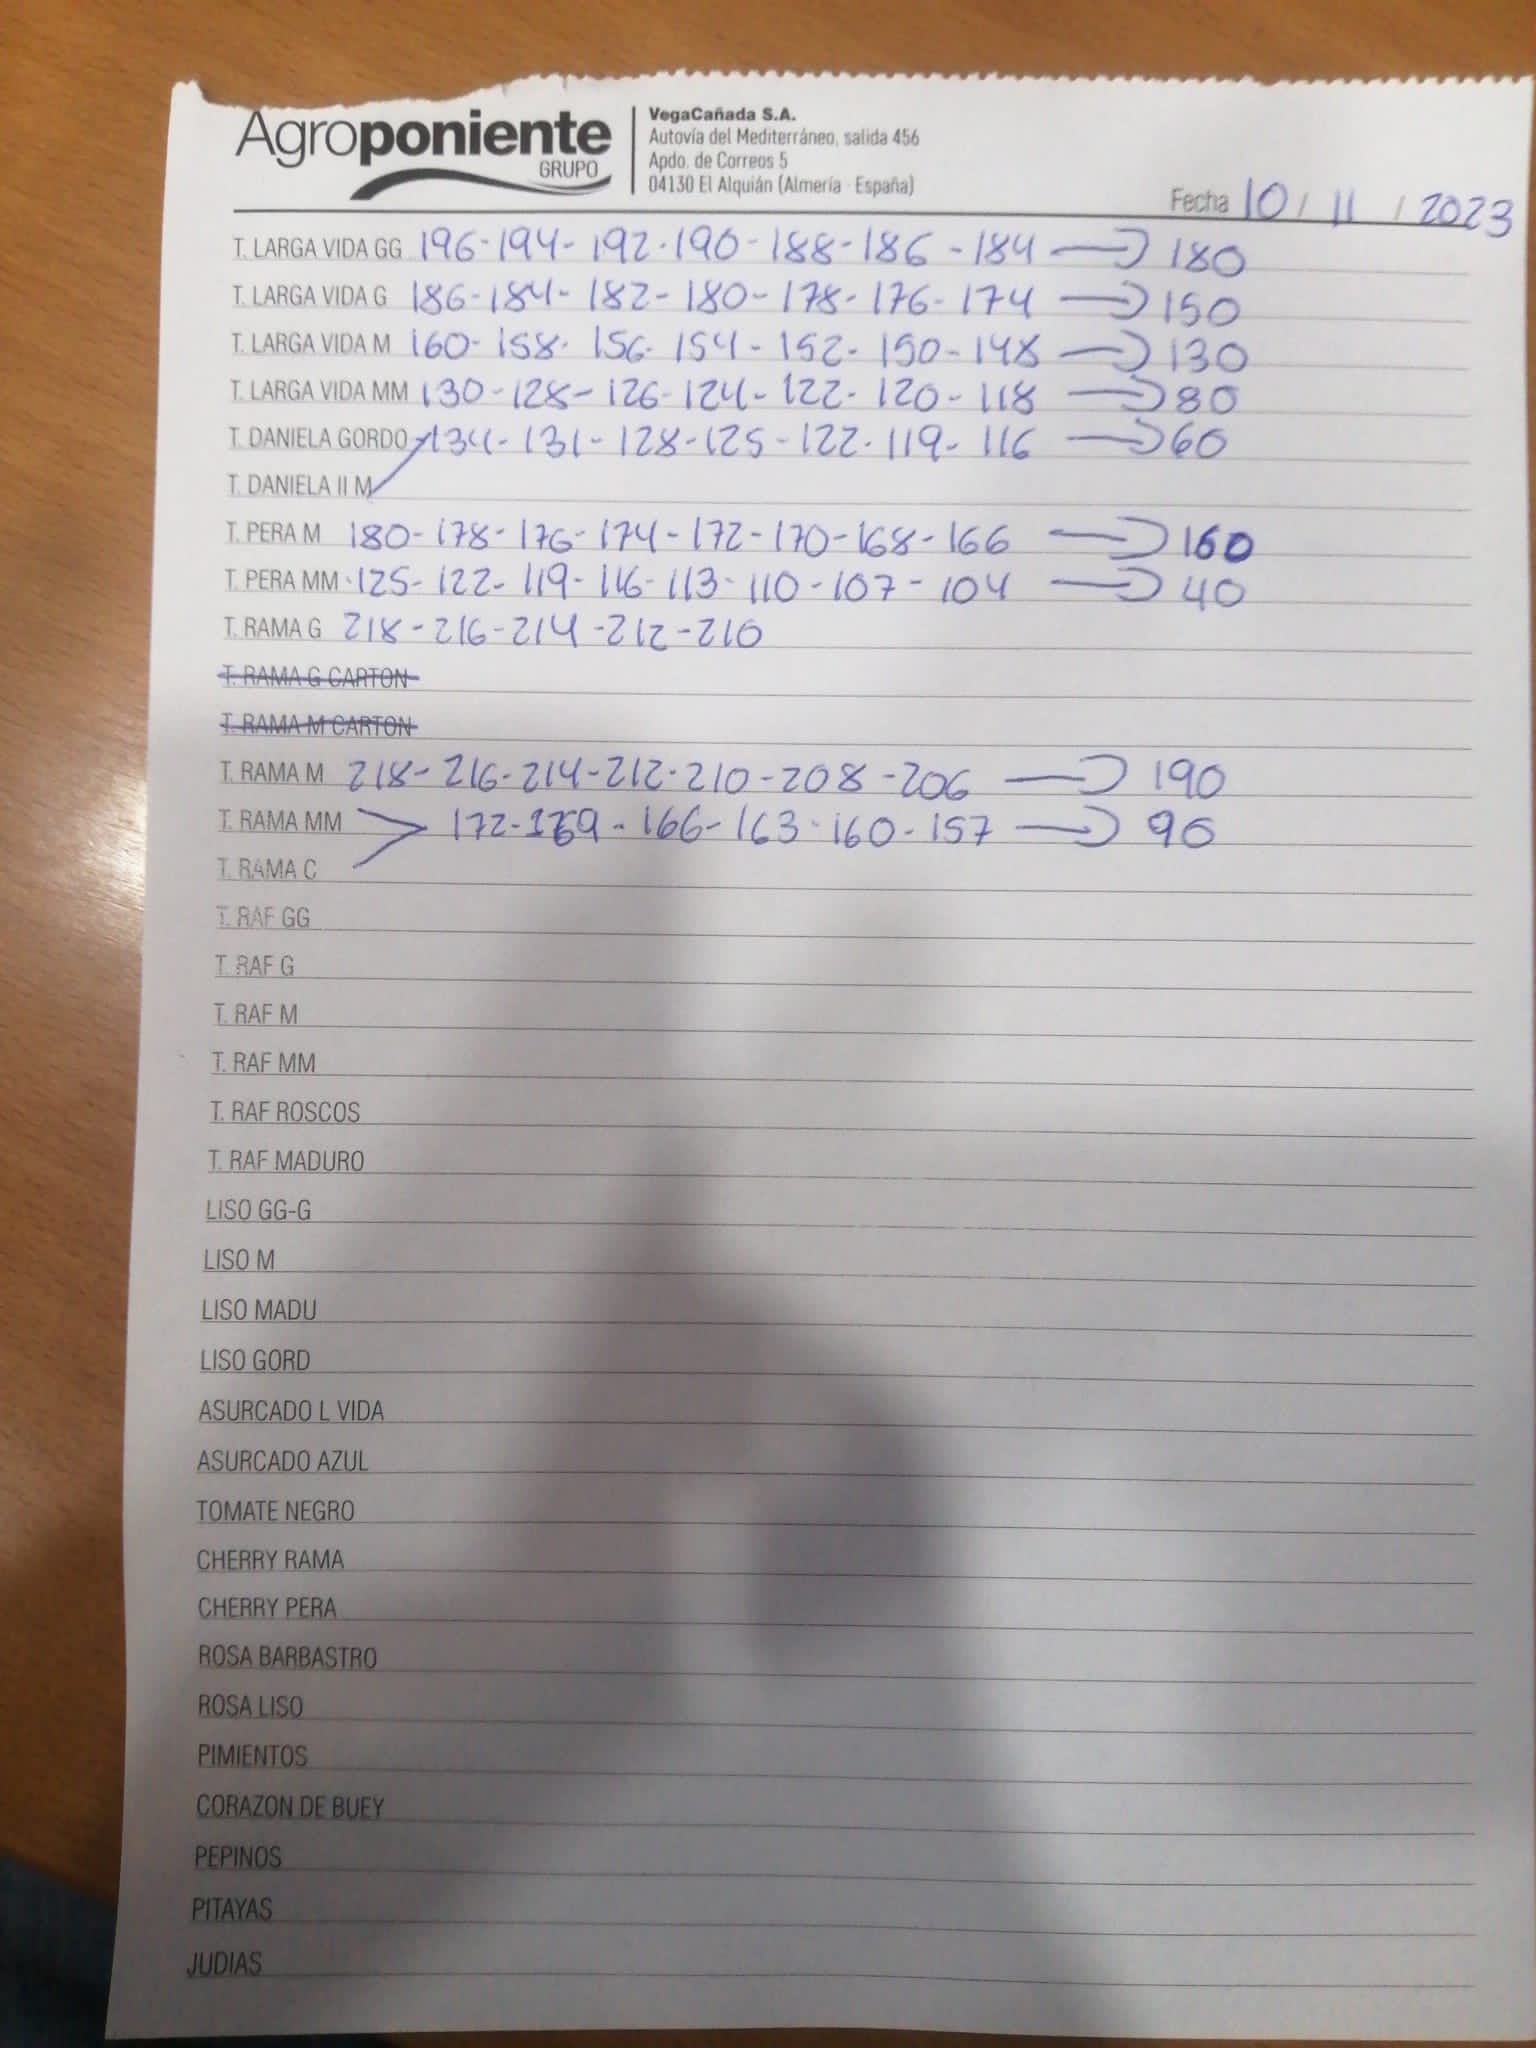 Agroponiente
GRUPO
VegaCañada S.A.
Autovía del Mediterráneo, salida 456
Apdo. de Correos 5
04130 El Alquián (Almería - España)
Fecha 10 / 11 / 2023
T. LARGA VIDA GG 196-194-192-190-188-186-184 → 180
T. LARGA VIDA G 186-184-182-180-178-176-174 → 150
T. LARGA VIDA M 160-158-156-154-152-150-148 → 130
T. LARGA VIDA MM 130-128-126-124-122-120-118 → 80
T. DANIELA GORDO 134-131-128-125-122-119-116 → 60
T. DANIELA II M
T. PERA M 180-178-176-174-172-170-168-166 → 160
T. PERA MM 125-122-119-116-113-110-107-104 → 40
T. RAMA G 218-216-214-212-210
T. RAMA G CARTON
T. RAMA M CARTON
T. RAMA M 218-216-214-212-210-208-206 → 190
T. RAMA MM 172-169-166-163-160-157 → 90
T. RAMA C
T. RAF GG
T. RAF G
T. RAF M
T. RAF MM
T. RAF ROSCOS
T. RAF MADURO
LISO GG-G
LISO M
LISO MADU
LISO GORD
ASURCADO L VIDA
ASURCADO AZUL
TOMATE NEGRO
CHERRY RAMA
CHERRY PERA
ROSA BARBASTRO
ROSA LISO
PIMIENTOS
CORAZON DE BUEY
PEPINOS
PITAYAS
JUDIAS